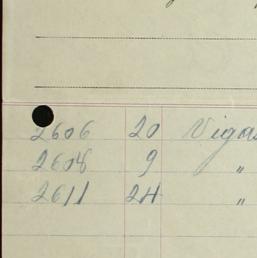 2606 20 Viga
2608 9 "
2611 24 "